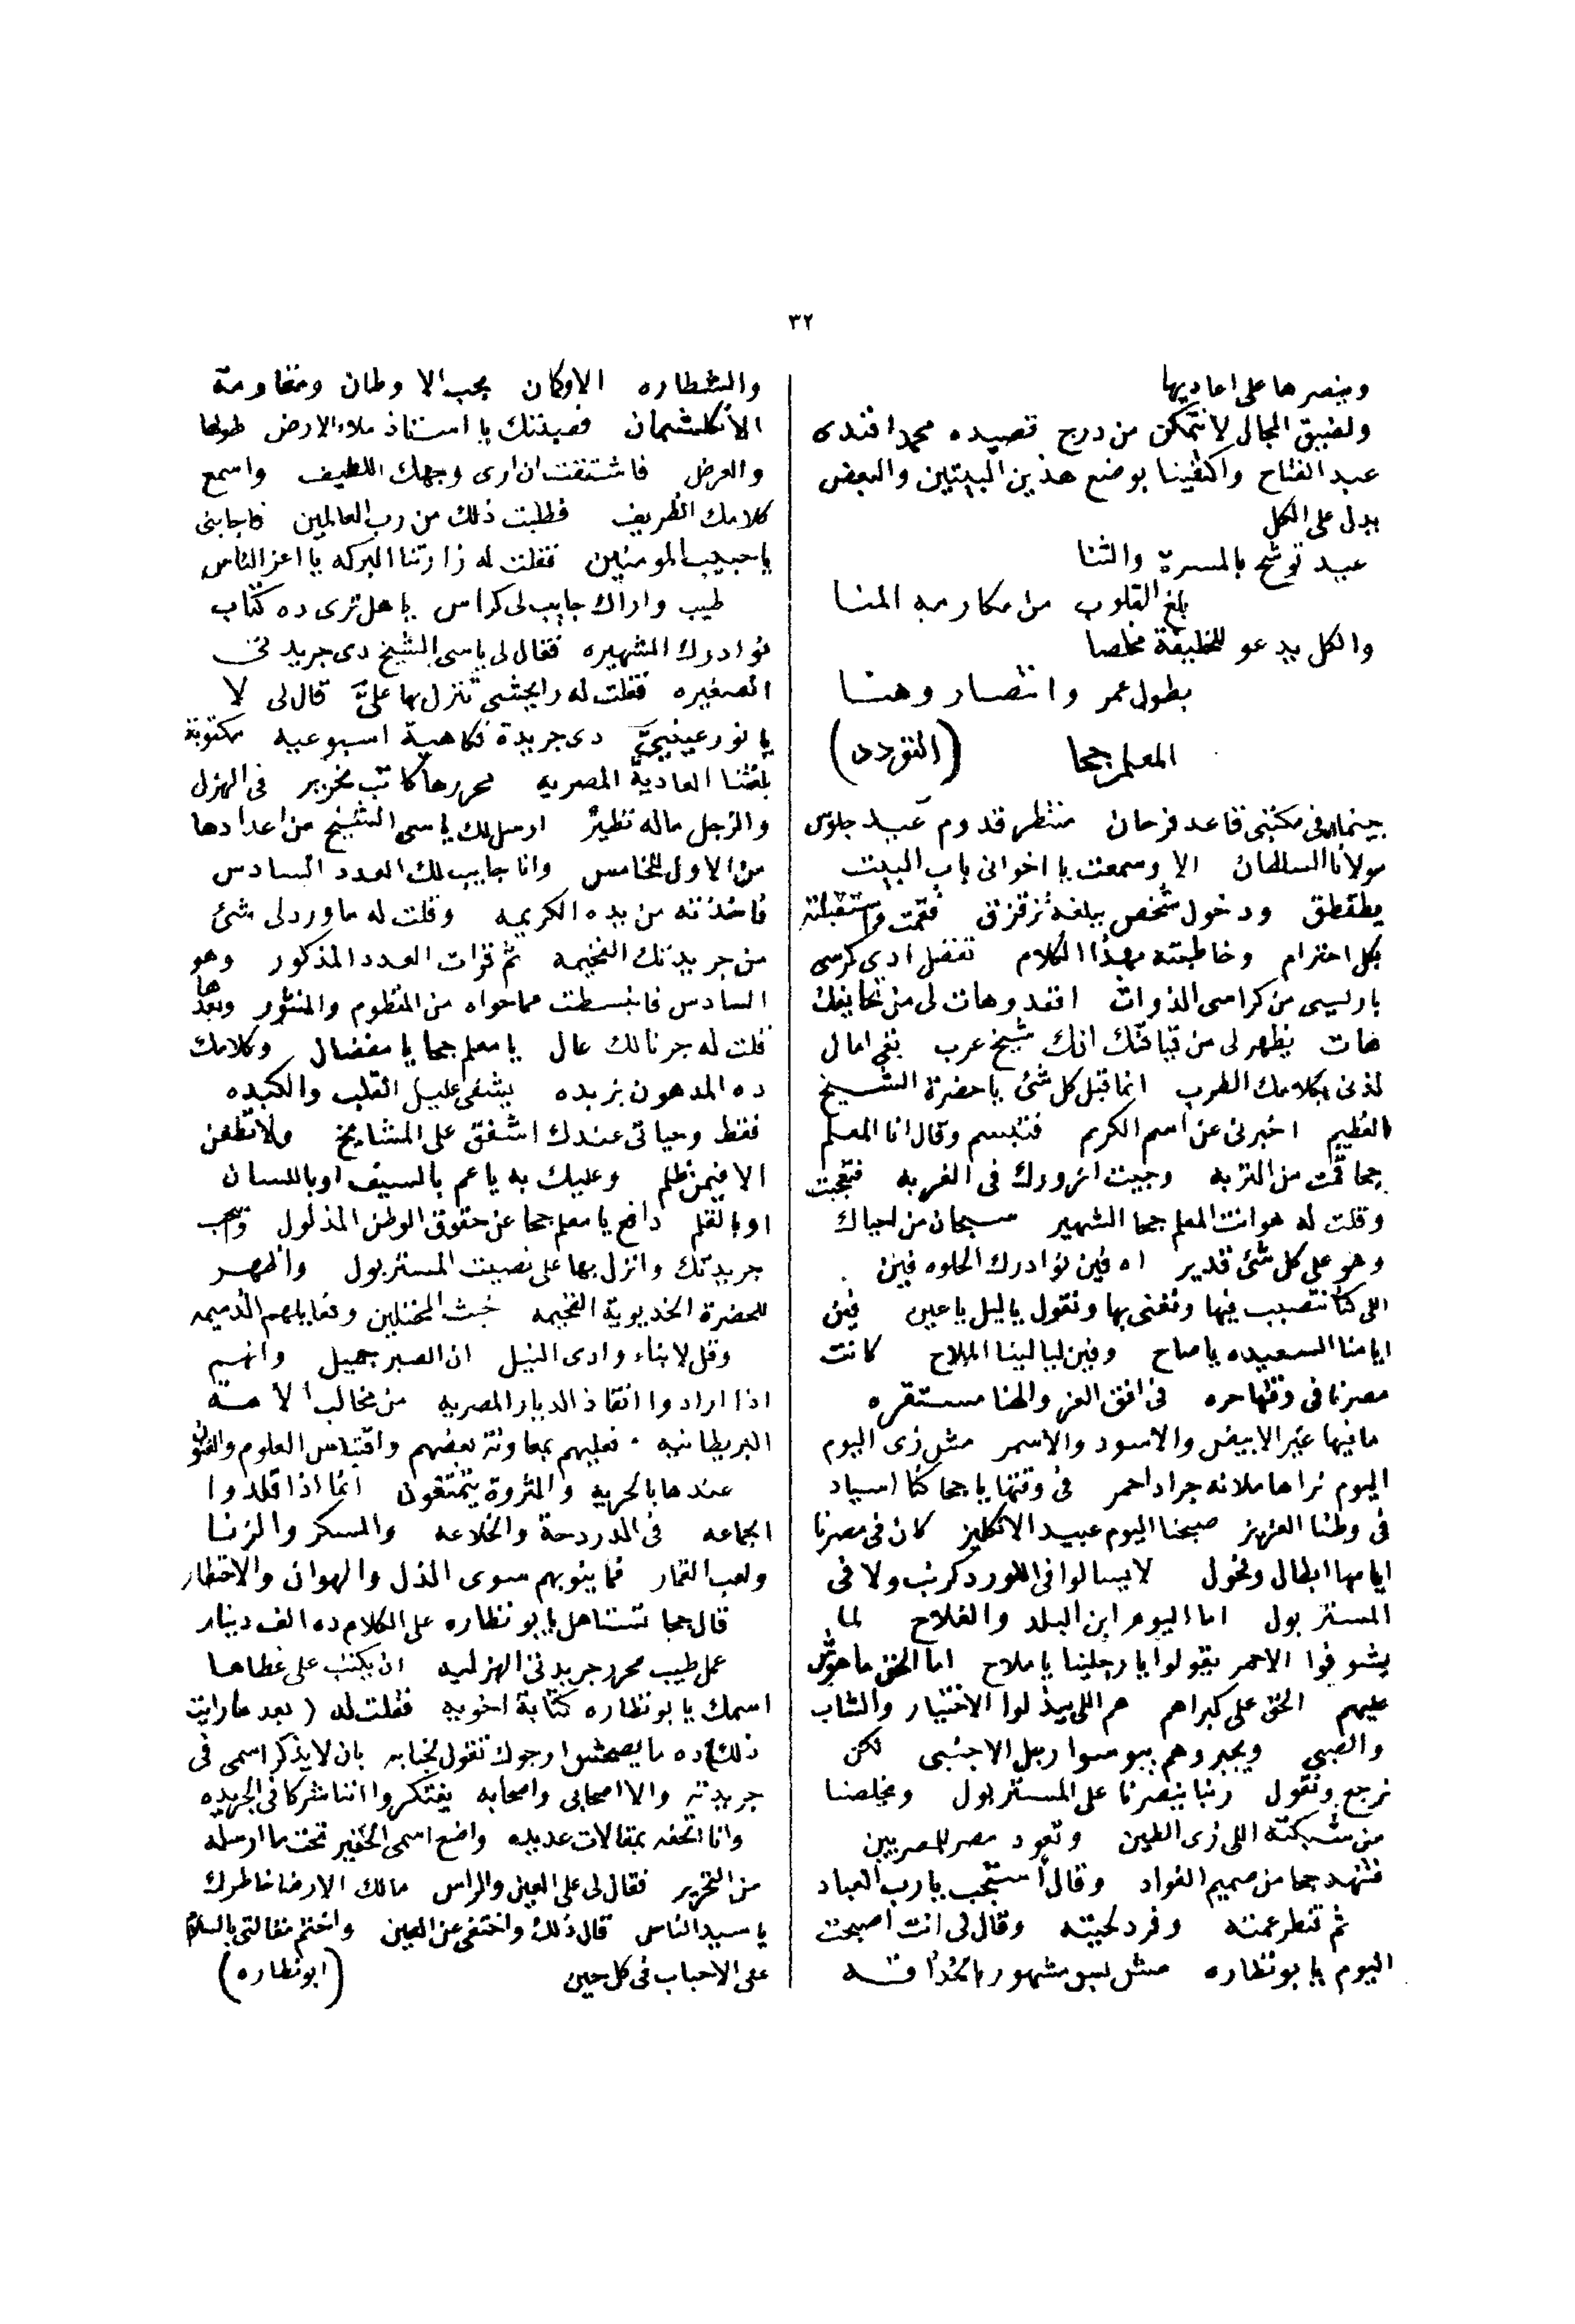 ٣٢
وينصرها على اعاديها
ولضيق المجال لا نتمكن من درج قصيده محمد افندى
عبد الفتاح واكتفينا بوضع هذين البيتين والبعض
يدل على الكل
عيد توشح بالمسرة والثنا
بلغ القلوب من مكارمه المنا
والكل يدعو للخليفة مخلصا
بطول عمر وانتصار وهنا
المعلم جحا (التودد)
بينما فى مكتبى قاعد فرحان منتظر قدوم عيد جلوس
مولانا السلطان الا وسمعت يا اخوانى باب البيت
يطقطق ودخول شخص ببلغه تزقزق فقمت واستقبلته
بكل احترام وخاطبته بهذا الكلام تفضل ادى كرسى
باريسى من كراسى الذوات اقعد وهات لى من تحايفك
هات يظهر لى من قيافتك انك شيخ عرب بقى امال
لذنى بكلامك الطرب انما قبل كل شئ يا حضرة الشيخ
العظيم اخبرنى عن اسم الكريم فتبسم وقال انا المعلم
جحا قمت من التربه وجيت ازورك فى الغربه فتعجبت
وقلت له هو انت المعلم جحا الشهير سبحان من احياك
وهو على كل شئ قدير اه فين نوادرك الحلوه فين
اللى كنا نتصبب فيها ونغنى بها ونقول يا ليل يا عين فين
ايامنا السعيده يا صاح وفين ليالينا الملاح كانت
مصرنا فى وقتها حره فى افق العز والهنا مستقره
ما فيها غير الابيض والاسود والاسمر مش زى اليوم
اليوم نراها ملانه جراد احمر فى وقتها يا جحا كنا اسياد
فى وطنا العزيز صبحنا اليوم عبيد الانكليز كان فى مصرنا
ايامها ابطال وفحول لا يسالوا فى اللورد كرنب ولا فى
المستر بول اما اليوم ابن البلد والفلاح لما
يشوفوا الاحمر يقولوا يا رجلينا يا ملاح اما الحق ماهوش
عليهم الحق على كبراهم هم اللى يبذلوا الاختيار والشاب
والصبى ويجبروهم يبوسوا رجل الاجنبى لكن
نرجع ونقول ربنا ينصرنا على المستر بول ويخلصنا
من شبكته اللى زى الطين وتعود مصر للمصريين
فتنهد جحا من صميم الفواد وقال استجب يا رب العباد
ثم قنطر عمته وفرد لحيته وقال لى انت اصبحت
اليوم يا بو نظاره مش بس مشهور بالحذاقه
والشطاره الا وكان بحب الاوطان ومقاومة
الانكلشمان فصيتك يا استاذ ملاء الارض طولها
والعرض فاشتقت ان ارى وجهك اللطيف واسمع
كلامك الظريف فطلبت ذلك من رب العالمين فاجابنى
يا حبيب المومنين فقلت له زارتنا البركه يا اعز الناس
طيب واراك جايب لى كراس يا هل ترى ده كتاب
نوادرك الشهيره فقال لى يا سى الشيخ دى جريدتى
الصغيره فقلت له رايحشى تنزل بها علىّ قال لى لا
يا نور عينيىّ دى جريدة فكاهية اسبوعيه مكتوبة
بلغتنا العاديه المصريه محررها كاتب نحرير فى الهزل
والزجل ماله نظير ارسل لك يا سى الشيخ من اعدادها
من الاول للخامس وانا جايب لك العدد السادس
فاخذته من يده الكريمه وقلت له ما ورد لى شئ
من جريدتك الفخيمه ثم قرات العدد المذكور وهو
السادس فانبسطت مما حواه من المنظوم والمنثور وبعدها
قلت له جرنالك عال يا معلم جحا يا مفضال وكلامك
ده المدهون بزبده يشفى عليل القلب والكبده
فقط وحياتى عندك اشفق على المشايخ ولا تطعن
الا فيمن ظلم وعليك به يا عم بالسيف او باللسان
او بالقلم دافع يا معلم جحا عن حقوق الوطن المذلول
جريدتك وانزل بها على نصيبت المستر بول واظهر
للحضرة الخديوية الفخيمه خبث المحتلين وفعايلهم الذميمه
وقل لابناء وادى النيل ان الصبر جميل وانهم
اذا ارادوا انقاذ الديار المصريه من مخالب الامة
البريطانيه فعليهم بمعاونة بعضهم واقتباس العلوم والفنون
عندها بالحريه والثروة يتمتعون انما اذا قلدوا
الجماعه فى الدردحة والخلاعه والسكر والزنا
ولعب القمار فما ينوبهم سوى الذل والهوان والاخطار
قال جحا تستاهل يا بو نظاره على الكلام ده الف دينار
عمل طيب محرر جريدتى الهزليه ان يكتب على غطاها
اسمك يا بو نظاره كتابة اخويه فقلت له (بعد ما رايت
ذلك) ده ما يصحش ارجوك تقول لجنابه بان لا يذكر اسمى فى
جريدته والا اصحابى واصحابه يفتكروا اننا شركا فى الجريده
وانا اتحفه بمقالات عديده واضع اسمى الحقير تحت ما ارسله
من التحرير فقال لى على العين والراس مالك الا رضا خاطرك
يا سيد الناس قال ذلك واختفى عن العين واختم مقالتى بالسلام
على الاحباب فى كل حين (ابو نظاره)